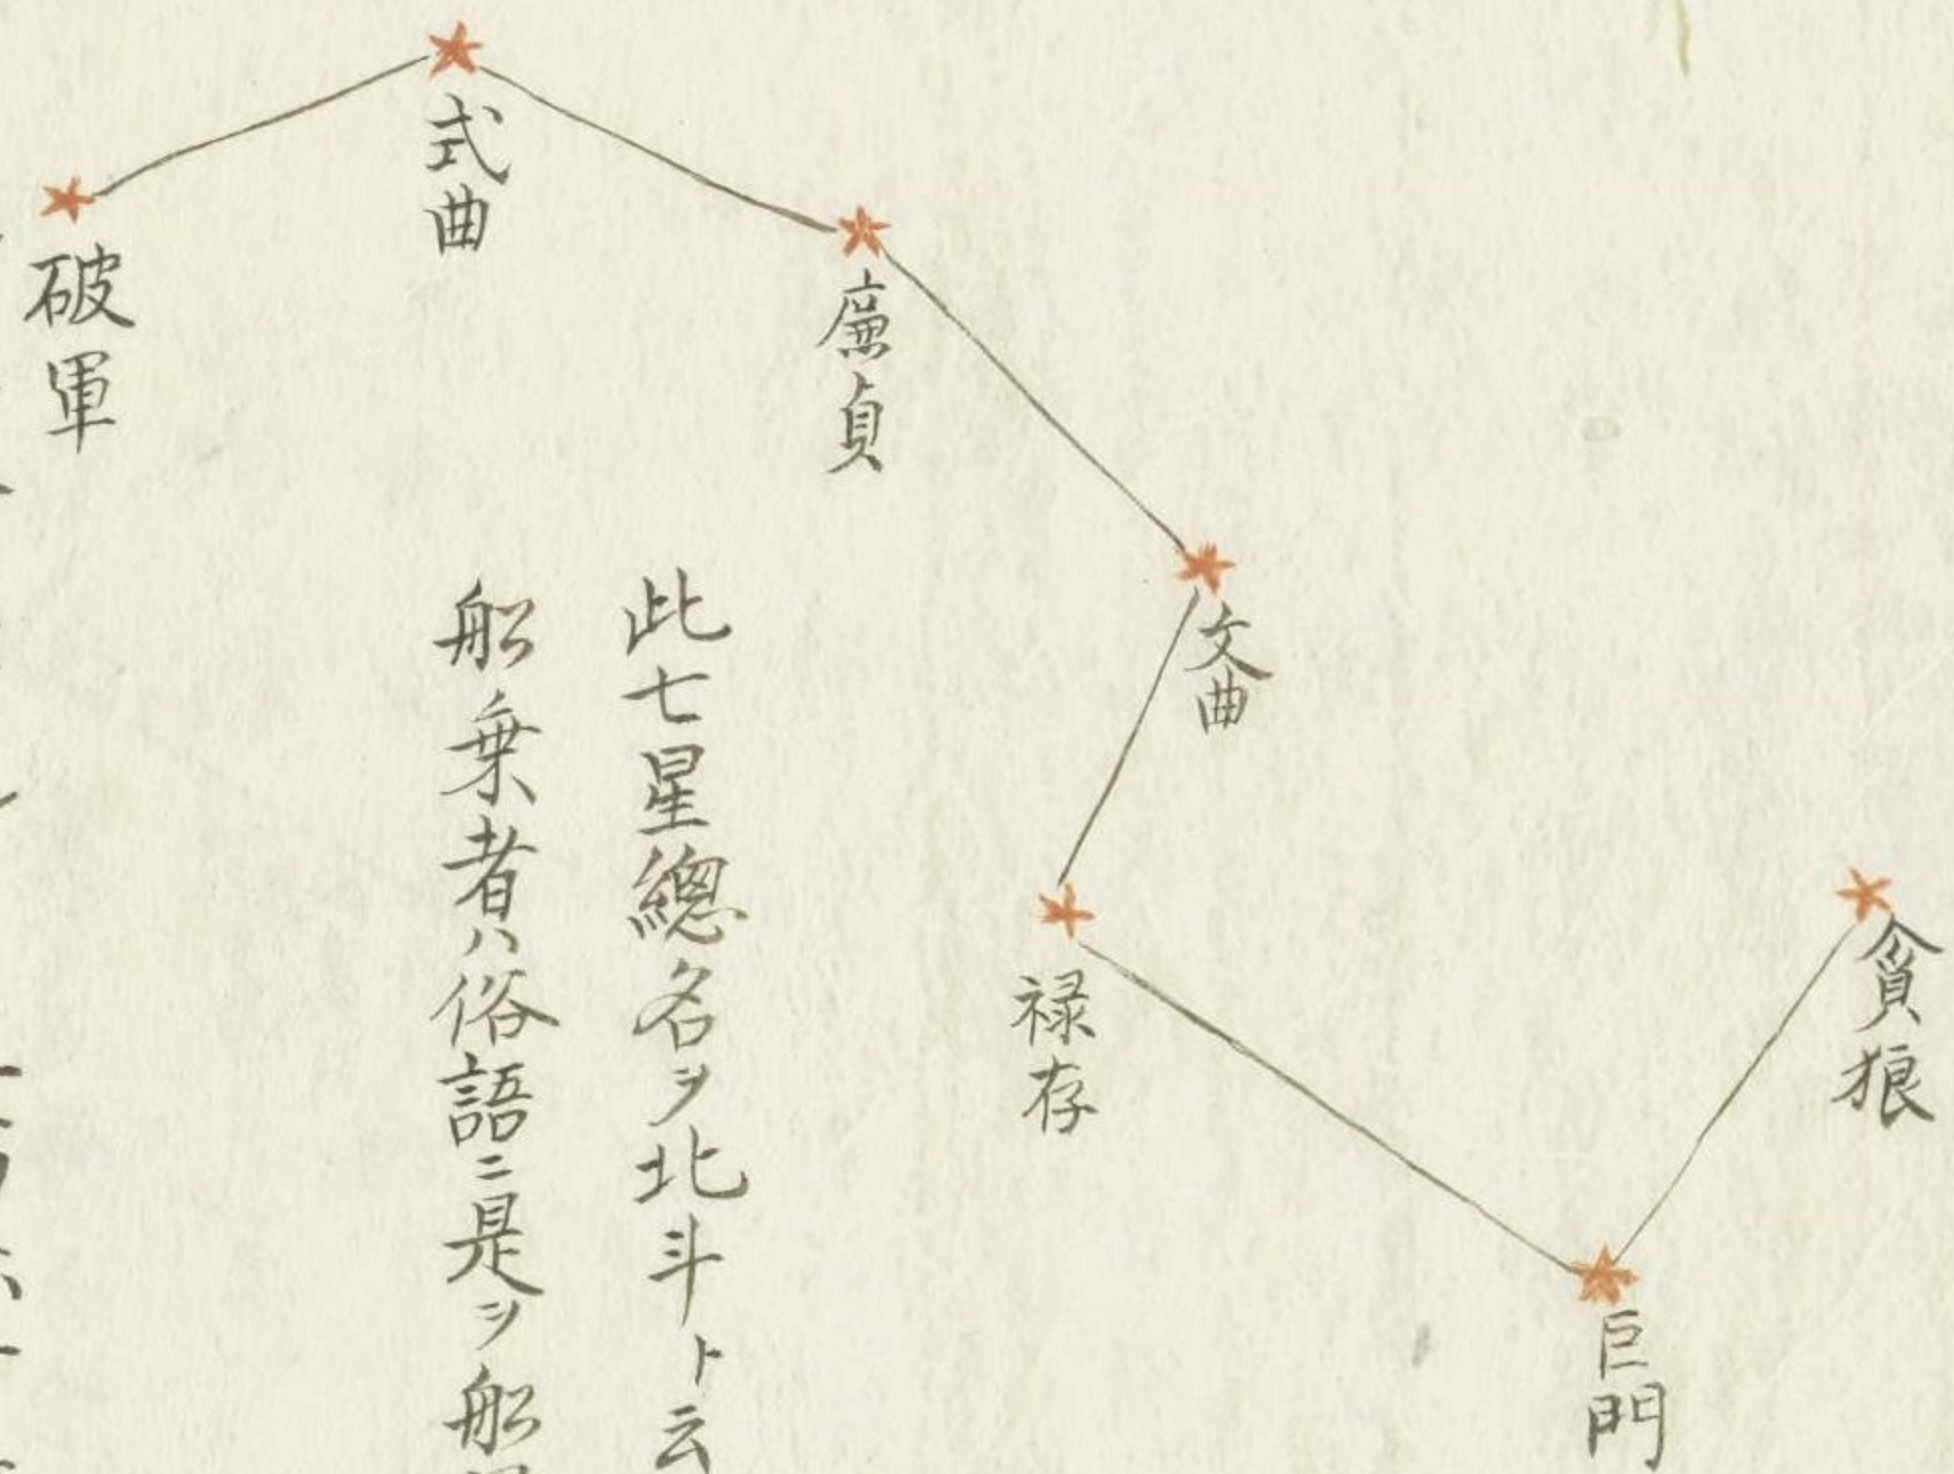 貪狼
巨門
禄存
文曲
廉貞
式曲
破軍
此七星總名ヲ北斗ト云
舩乗者ハ俗語ニ是ヲ舩